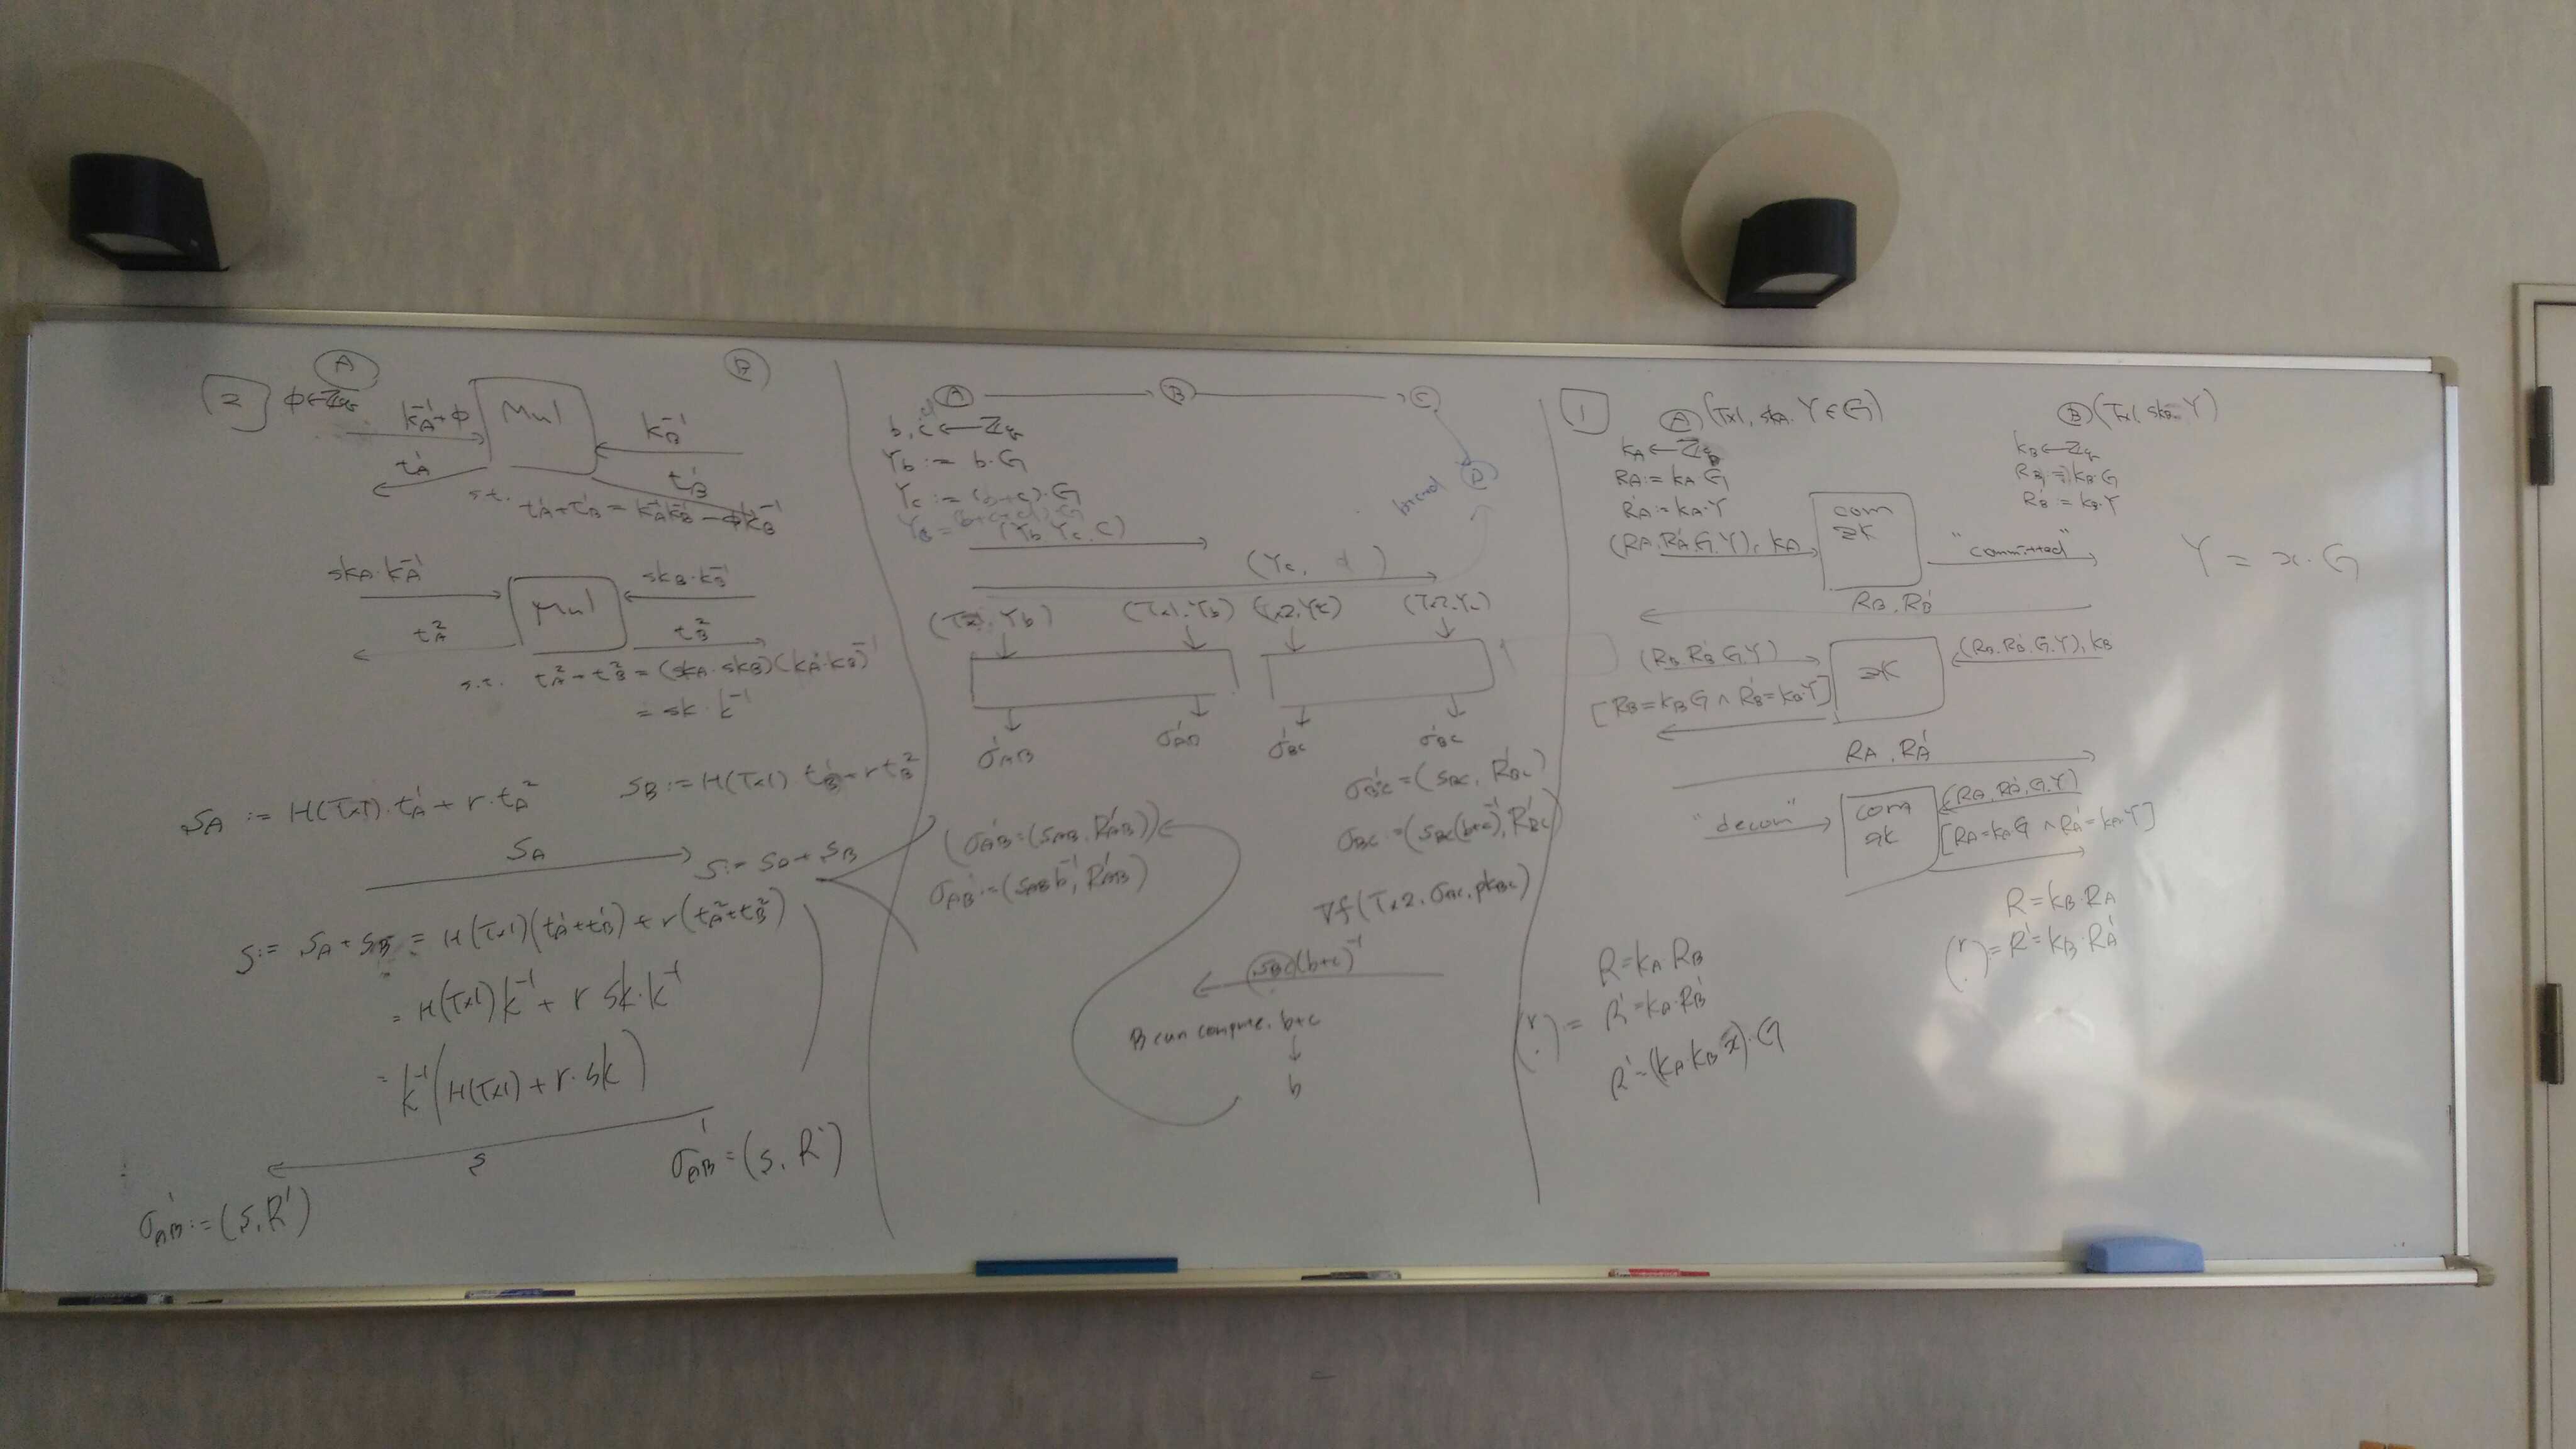 2
A
B
ϕ←Zq
k_A^-1+ϕ
Mul
k_B^-1
t_A^1
t_B^1
s.t. t_A^1+t_B^1 = k_A^-1 k_B^-1 - ϕk_B^-1
sk_A·k_A^-1
Mul
sk_B·k_B^-1
t_A^2
t_B^2
s.t. t_A^2+t_B^2 = (sk_A·sk_B)(k_A^-1·k_B^-1)
= sk·k^-1
S_A := H(Tx1)·t_A^1 + r·t_A^2
S_B := H(Tx1) t_B^1 + r t_B^2
S_A
S := S_A + S_B
S := S_A + S_B = H(Tx1)(t_A^1+t_B^1) + r(t_A^2+t_B^2)
= H(Tx1)k^-1 + r sk·k^-1
= k^-1(H(Tx1) + r·sk)
s
σ'_AB = (s, R')
σ'_AB := (s, R')
A
B
C
D
b, c, d ← Zq
Y_b := b·G
Y_c := (b+c)·G
(Y_b, Y_c, C)
b+c+d
(Y_c, d)
(Tx1, Y_b)
(Tx2, Y_c)
(Tx2, Y_c)
σ'_AB
σ'_AB
σ'_BC
σ'_BC
σ'_BC = (s_BC, R'_BC)
σ_BC = (s_BC(b+c)^-1, R'_BC)
(σ'_AB = (s_AB, R'_AB))
σ_AB := (s_AB b^-1, R'_AB)
Vf(Tx2, σ_BC, pk_BC)
s_BC(b+c)^-1
B can compute b+c
b
1
A (Tx1, sk_A, Y∈G)
B (Tx1, sk_B, Y)
k_A ← Zq
R_A := k_A G
R'_A := k_A·Y
k_B ← Zq
R_B := k_B·G
R'_B = k_B·Y
(R_A, R'_A, G, Y), k_A
com
ZK
"committed"
Y = x·G
R_B, R'_B
(R_B, R'_B, G, Y)
ZK
(R_B, R'_B, G, Y), k_B
[R_B = k_B G ∧ R'_B = k_B·Y]
R_A, R'_A
"decom"
com
ZK
(R_A, R'_A, G, Y)
[R_A = k_A G ∧ R'_A = k_A·Y]
R = k_B·R_A
(r, ·) = R' = k_B·R'_A
R = k_A R_B
(r, ·) = R' = k_A·R'_B
R' = (k_A k_B x)·G